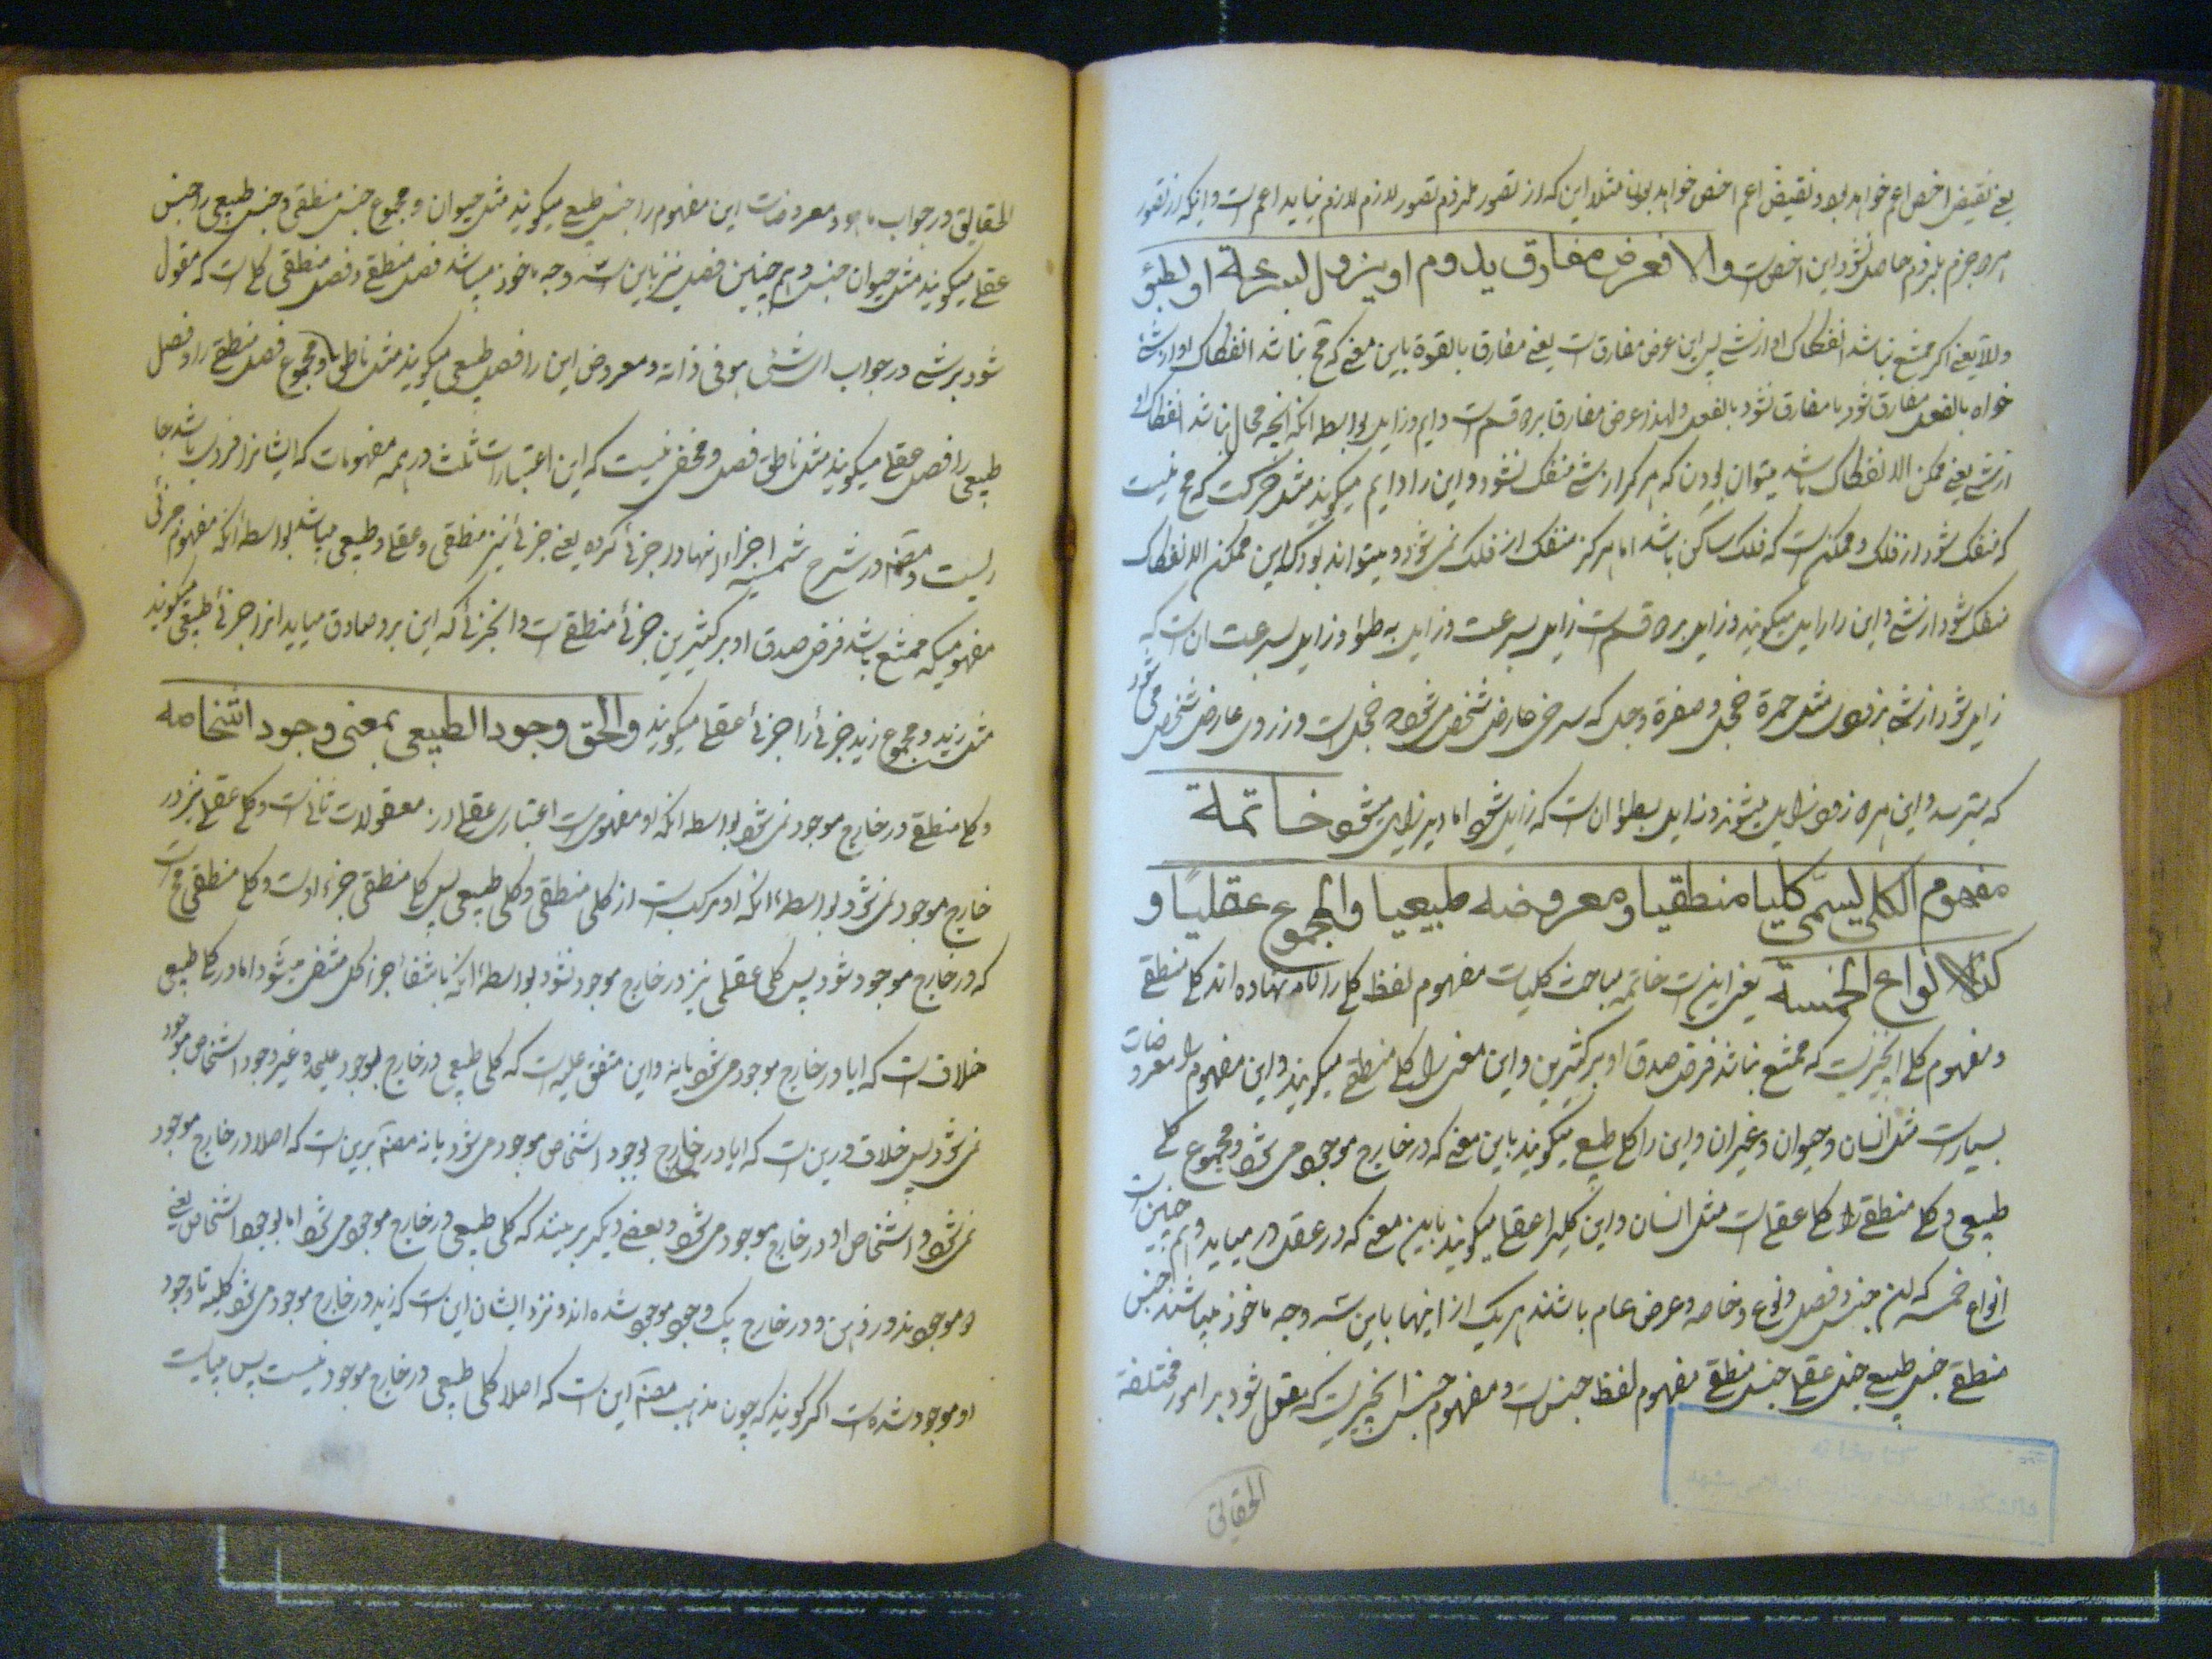 یعنی نقیض اخص اعم خواهد بود و نقیض اعم اخص خواهد بود مثلا این که از تصور ملزوم تصور لازم لازم نیاید اعم است و اینکه از تصور
هر دو جزم بلزوم حاصل نشود این اخص است والا فعرض مفارق یدوم او یزول لسرعة او لبطئ
والا یعنی اگر ممتنع نباشد انفکاک او از شئ پس این عرض مفارق است یعنی مفارق بالقوة باین معنی که مح نباشد انفکاک او از شئ
خواه بالفعل مفارق شود یا مفارق نشود بالفعل ولهذا عرض مفارق بر دو قسم است دایم و زایل بواسطه آنکه آنچه محال نباشد انفکاک او
از شئ یعنی ممکن الانفکاک باشد میتوان بودن که هرگز از شئ منفک نشود و این را دایم میگویند مثل حرکت که مح نیست
که منفک شود از فلک و ممکنست که فلک ساکن باشد اما هرگز منفک از فلک نمی شود و میتواند بود که این ممکن الانفکاک
منفک شود از شئ و این را زایل میگویند و زایل بر دو قسم است زایل بسرعت و زایل به بطؤ و زایل بسرعت آن است که
زایل شود از شئ بزودی مثل حمرة خجل و صفرة وجل که سرخی عارض شخص می شود که خجل است و زردی عارض شخص می شود
که بترسد و این هر دو زود زایل میشوند و زایل ببطؤ آن است که زایل شود اما دیر زایل میشود خاتمة
مفهوم الکلی یسمی کلیا منطقیا و معروضه طبیعیا والمجموع عقلیا و
کذا الانواع الخمسة یعنی اینست خاتمه مباحث کلیات مفهوم لفظ کلی را نام نهاده اند کلی منطقی
و مفهوم کلی آنچیزیست که ممتنع نباشد فرض صدق او بر کثیرین و این معنی را کلی منطقی میگویند و این مفهوم را معروضات
بسیارست مثل انسان و حیوان و غیر آن و این را کلی طبیعی میگویند باین معنی که در خارج موجود می شود و مجموع کلی
طبیعی و کلی منطقی را کلی عقلی است مثل انسان و این کلیرا عقلی میگویند باین معنی که در عقل در میآید و هم چنین است
انواع خمسه که آن جنس و فصل و نوع و خاصه و عرض عام باشند هر یک از اینها باین سه وجه ماخوذ میباشند جنس
منطقی جنس طبیعی جنس عقلی جنس منطقی مفهوم لفظ جنس است و مفهوم جنس آنچیزیست که مقول شود بر امور مختلفة
الحقایق
الحقایق در جواب ما هو و معروضات این مفهوم را جنس طبیعی میگویند مثل حیوان و مجموع جنس منطقی و جنس طبیعی را جنس
عقلی میگویند مثل حیوان جنس و هم چنین فصل نیز باین سه وجه ماخوذ میباشد فصل منطقی و فصل منطقی کلی است که مقول
شود بر شئ در جواب ای شئ هو فی ذاته و معروض این را فصل طبیعی میگویند مثل ناطق و مجموع فصل منطقی را و فصل
طبیعی را فصل عقلی میگویند مثل ناطق فصل و مخفی نیست که این اعتبارات ثلث در همه مفهومات که ایشانرا افراد باشد جا
ریست و مصنف در شرح شمسیه اجزاء اینها در جزئی کرده یعنی جزئی نیز منطقی و عقلی و طبیعی میباشد بواسطه آنکه مفهوم جزئی
مفهومیکه ممتنع باشد فرض صدق او بر کثیرین جزئی منطقی است و آنجزئی که این برو صادق میآید انرا جزئی طبیعی میگویند
مثل زید و مجموع زید جزئی را جزئی عقلی میگویند والحق وجود الطبیعی بمعنی وجود اشخاصه
و کلی منطقی در خارج موجود نمی شود بواسطه آنکه او مفهومیست اعتباری عقلی از معقولات ثانی است و کلی عقلی نیز در
خارج موجود نمی شود بواسطه آنکه او مرکب است از کلی منطقی و کلی طبیعی پس کلی منطقی جزء اوست و کلی منطقی مح است
که در خارج موجود شود پس کلی عقلی نیز در خارج موجود نشود بواسطه آنکه بانتفاء جزء کل منتفی میشود اما در کلی طبیعی
خلاف است که ایا در خارج موجود می شود یا نه و این متفق علیه است که کلی طبیعی در خارج بوجود علیحده غیر وجود اشخاص موجود
نمی شود پس خلاف درین است که ایا در خارج بوجود اشخاص موجود می شود یا نه مصنف برین است که اصلا در خارج موجود
نمی شود و اشخاص او در خارج موجود می شود و بعضی دیگر برینند که کلی طبیعی در خارج موجود می شود اما بوجود اشخاص یعنی
دو موجودند در ذهن و در خارج یک وجود موجود شده اند و نزد ایشان این است که زید در خارج موجود می شود کلیه تا وجود
او موجود شده است اگر گویند که چون مذهب مصنف این است که اصلا کلی طبیعی در خارج موجود نیست پس میبایست